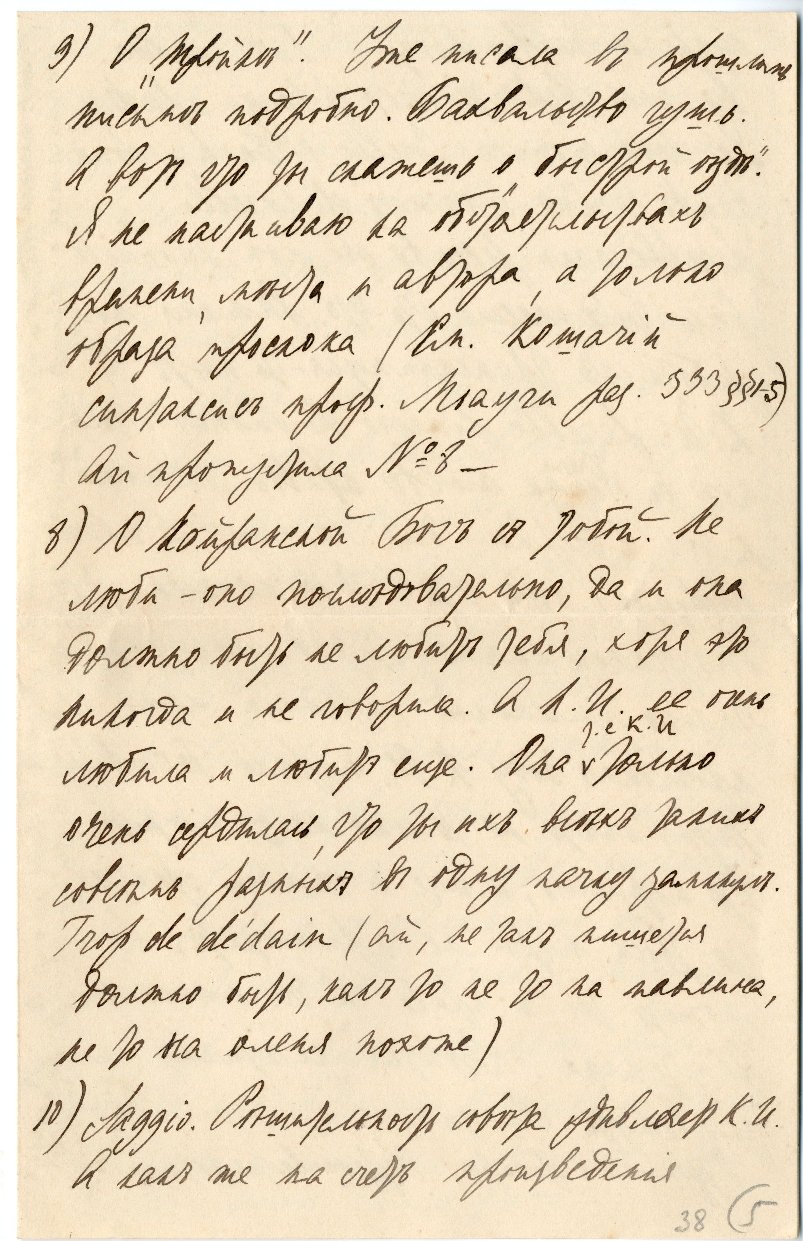 9) О „тройкѣ". Уже писала въ прошломъ
письмѣ подробно. Бахвальство чушь.
А вотъ что ты скажешь о „быстрой ѣздѣ".
Я не настаиваю на обстоятельствахъ
времени, мѣста и автора, а только
образа проскока (См. Кошачій
синтаксисъ проф. Мяучи раз. 333 §§1-5)
Ай пропустила № 8 —
8) О Койранской Богъ съ тобой. Не
люби – оно послѣдовательно, да и она
должно быть не любитъ тебя, хотя это
никогда и не говорила. А К. И. ее очень
любила и любитъ еще. Она т.е К.И только
очень сердилась, что ты ихъ всѣхъ такихъ
совсѣмъ разныхъ въ одну пачку
Trop de dédain (ай, не такъ пишется
должно быть, какъ то не то на павлина,
не то на оленя похоже)
10) Saggio. Рѣшительность совѣта удивляетъ К. И.
А какъ же на счетъ произведенія
38 (5